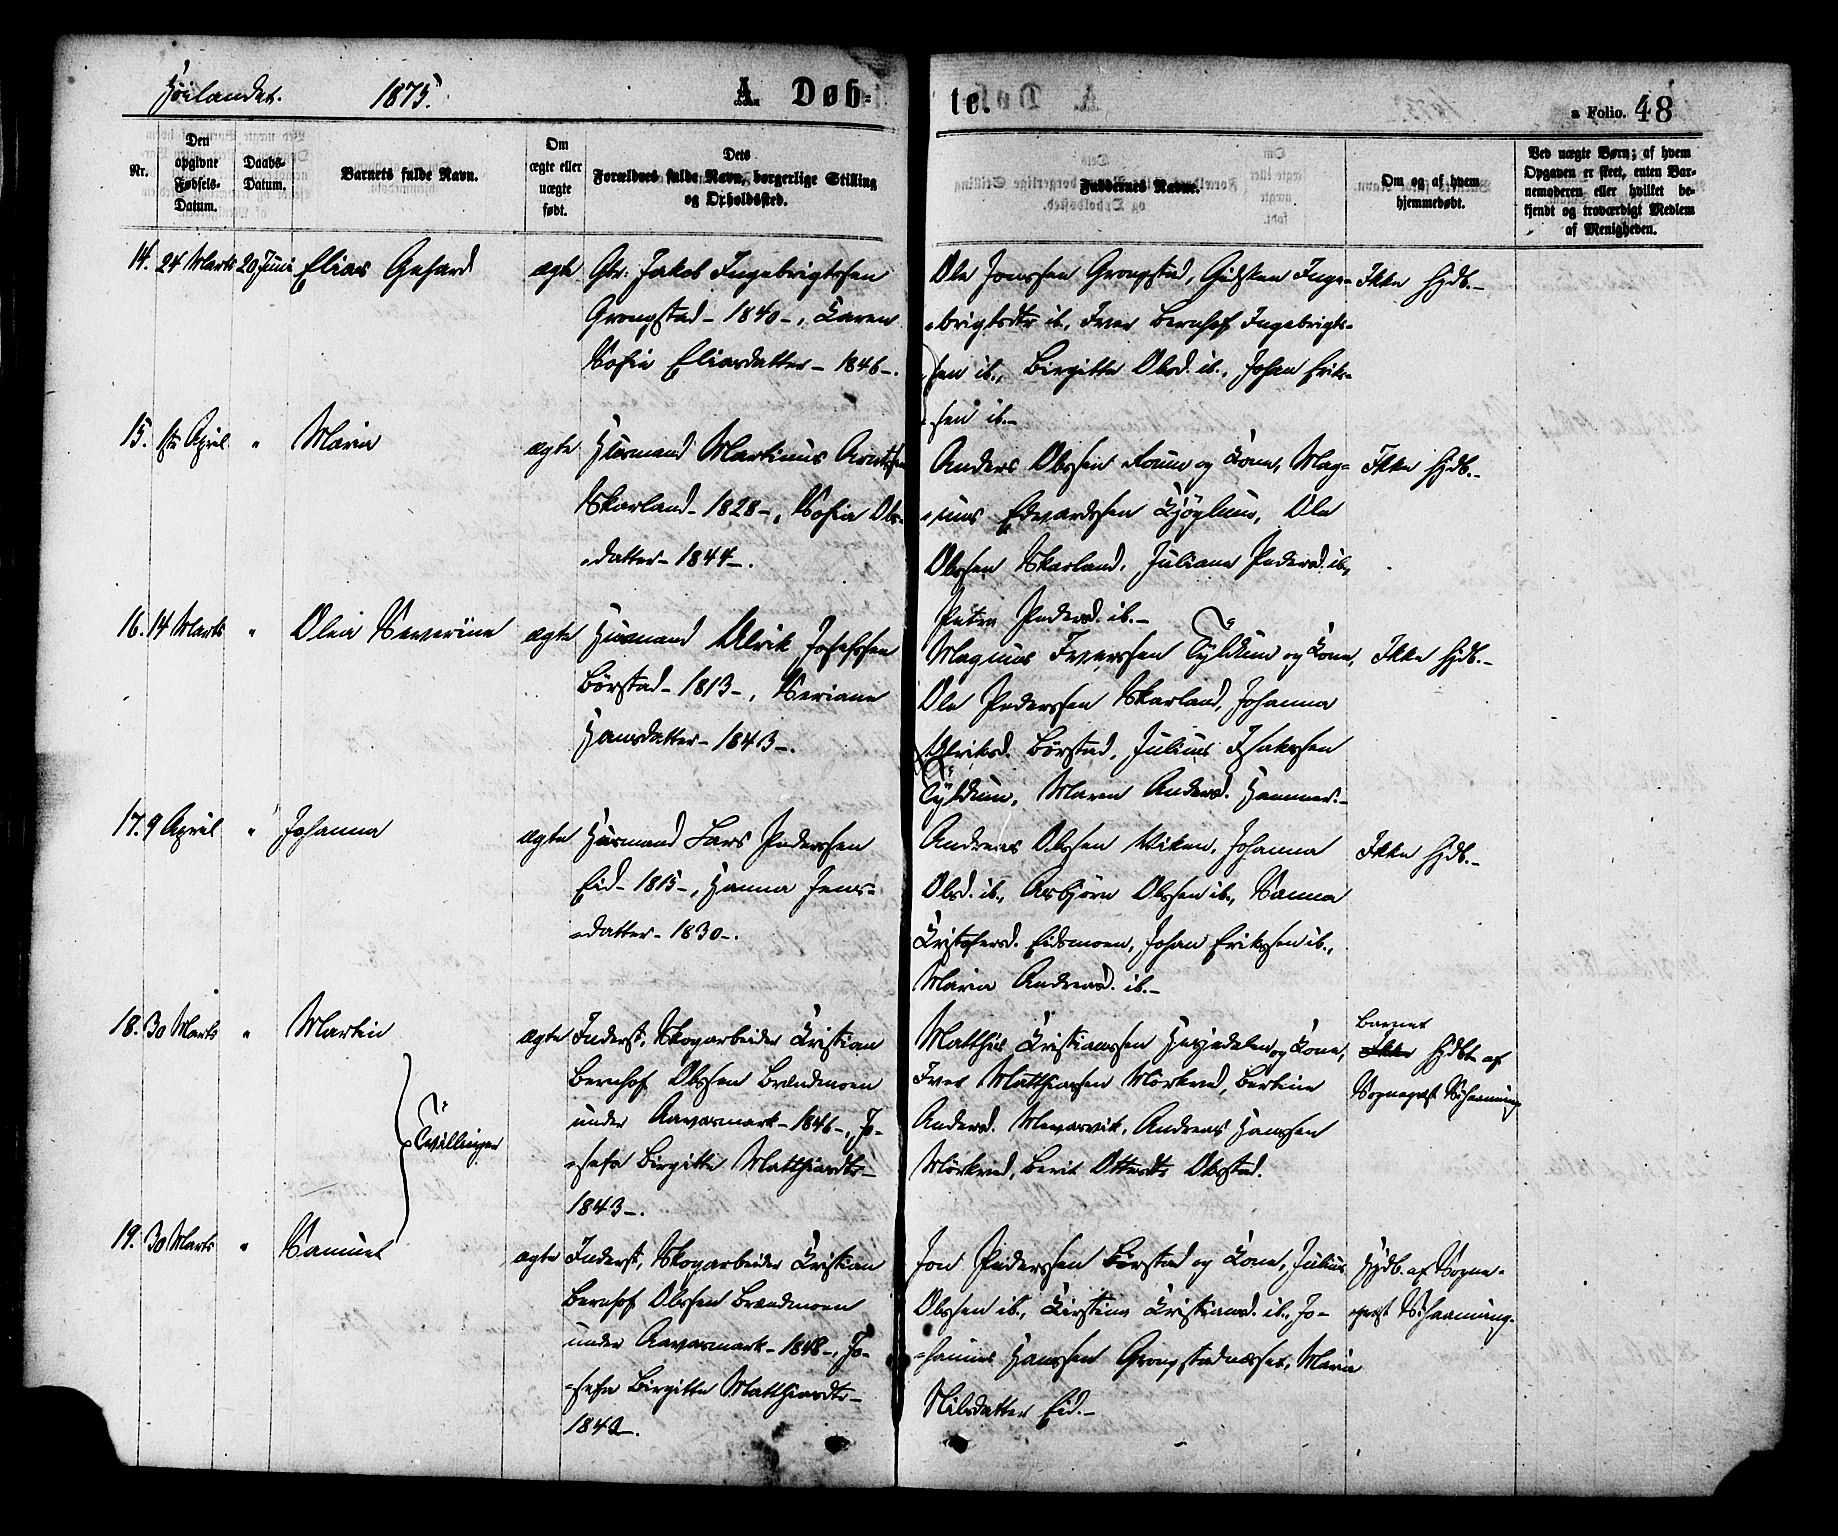 Höilandet. 1875. A. Døb-
te. a Folio. 48
Nr.
Den opgivne Fødsels-Datum.
Daabs-Datum.
Barnets fulde Navn.
Om ægte eller uægte født.
Dets Forældres fulde Navn, borgerlige Stilling og Opholdssted.
Faddernes Navne.
Om og af hvem hjemmedøbt.
Ved uægte Børn; af hvem Opgaven er skeet, enten Barnemoderen eller hvilket bekjendt og troværdigt Medlem af Menigheden.
14. 24 Marts 20 Juni Elias Gehard ægte Gbr. Jakob Ingebrigtssen
Grongstad - 1840 -, Karen
Sofie Eliasdatter - 1846 -.
Ole Jonssen Grongstad, Gidsken Inge-
-brigtsdtr ib., Iver Bernhof Ingebrigts-
-sen ib., Birgitte Olsd. ib., Johan Erik-
-sen ib. -
Ikke Hjdb. -
15. 1ste April " Maria ægte Husmand Martinus Arntssen
Skarland - 1828 -, Sofia Ols-
-datter - 1844 -.
Anders Olssen Romo og Kone, Mag-
-nus Edvardssen Kjöglum, Ole
Olssen Skarland, Juliana Pedersd. ib.,
Petra Pedersd. ib. -
Ikke Hjdb. -
16. 14 Marts " Olea Severine ægte Husmand Ulrik Josefssen
Börstad - 1813 -, Seriane
Hansdatter - 1843 -.
Magnus Iverssen Tyldum og Kone,
Ole Pederssen Skarland, Johanna
Ulriksd. Börstad, Julius Isakssen
Tyldum, Maren Andersd. Hammer. -
Ikke Hjdb. -
17. 9 April " Johanna ægte Husmand Lars Pederssen
Eid - 1815 -, Hanna Jens-
-datter - 1830 -.
Andreas Olssen Viken, Johanna
Olsd. ib., Asbjörn Olssen ib., Sanna
Kristofersd. Eidsmoen, Johan Erikssen ib.,
Maria Andreasd. ib. -
Ikke Hjdb. -
18. 30 Marts " Martin ægte Inderst, Skogarbeider Kristian
Bernhof Olssen Brændmoen
under Aavasmark - 1846 -, Jo-
-sefa Birgitte Matthiasdtr -
1843 -.
Tvillinger
Matthis Kristianssen Heiedalen og Kone,
Iver Matthiassen Mörkved, Bertine
Andersd. Mevasvik, Andreas Hanssen
Mörkved, Berit Ottersdtr Olsstad.
Barnet
Ikke Hjdbt af
Sogneprest
19. 30 Marts " Samuel ægte Inderst, Skogarbeider Kristian
Bernhof Olssen Brændmoen
under Aavasmark - 1848 -, Jo-
-sefa Birgitte Matthiasdtr -
1840 -.
Jon Pederssen Börstad og Kone, Julius
Olssen ib., Kirstine Kristiansd. ib., Jo-
-hannes Hanssen Grongstadnæsset, Maria
Nilsdatter Eid. -
Hjdb. af Sogne-
-prest